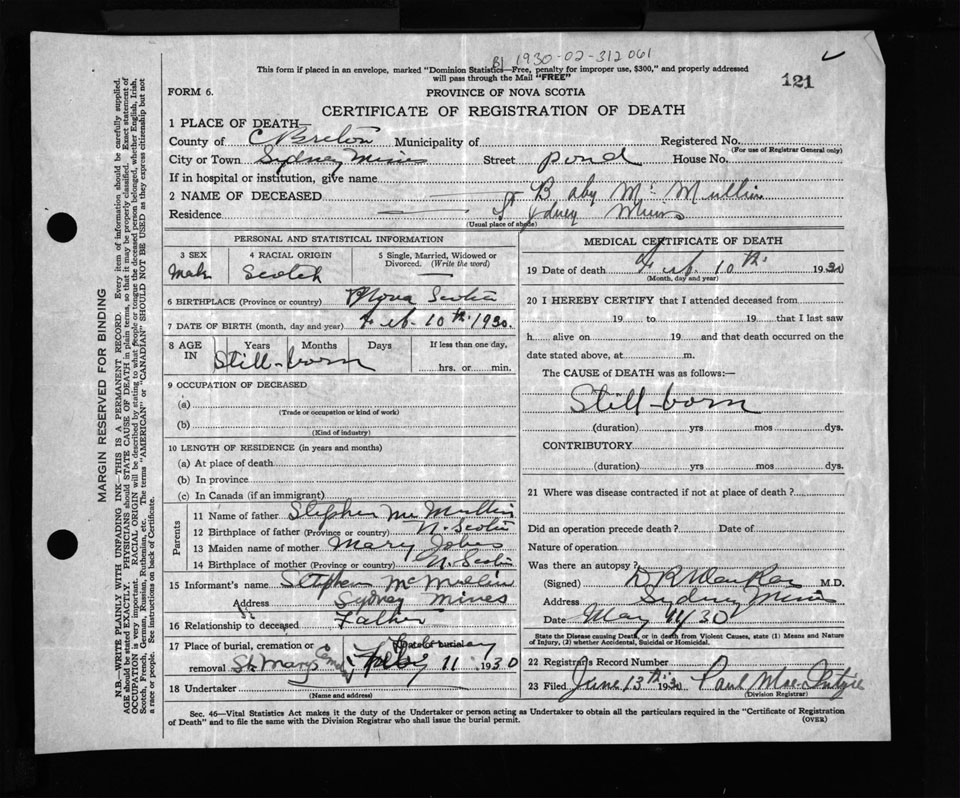 BI 1930-02-312061
This form if placed in an envelope, marked "Dominion Statistics—Free, penalty for improper use, $300," and properly addressed
will pass through the Mail "FREE"
121
FORM 6.
PROVINCE OF NOVA SCOTIA
CERTIFICATE OF REGISTRATION OF DEATH
1 PLACE OF DEATH—
County of C Breton Municipality of Registered No.
(For use of Registrar General only)
City or Town Sydney Mines Street Pond House No.
If in hospital or institution, give name
2 NAME OF DECEASED Baby Mc Mullin
Residence Sydney Mines
(Usual place of abode)
PERSONAL AND STATISTICAL INFORMATION
3 SEX 4 RACIAL ORIGIN 5 Single, Married, Widowed or Divorced. (Write the word)
Male Scotch
6 BIRTHPLACE (Province or country) Nova Scotia
7 DATE OF BIRTH (month, day and year) Feb. 10th. 1930.
8 AGE IN Years Months Days If less than one day,
Still-born hrs. or min.
9 OCCUPATION OF DECEASED
(a)
(Trade or occupation or kind of work)
(b)
(Kind of industry)
10 LENGTH OF RESIDENCE (in years and months)
(a) At place of death
(b) In province
(c) In Canada (if an immigrant)
Parents
11 Name of father Stephen Mc Mullin
12 Birthplace of father (Province or country) N. Scotia
13 Maiden name of mother Mary
14 Birthplace of mother (Province or country) N. Scotia
15 Informant's name Stephen Mc Mullin
Address Sydney Mines
16 Relationship to deceased Father
17 Place of burial, cremation or removal St. Marys Date of burial Feby 11 1930
18 Undertaker
(Name and address)
MEDICAL CERTIFICATE OF DEATH
19 Date of death Feb. 10th. 1930
(Month, day and year)
20 I HEREBY CERTIFY that I attended deceased from
19 to 19 that I last saw
h alive on 19 and that death occurred on the
date stated above, at m.
The CAUSE of DEATH was as follows:—
Still-born
(duration) yrs mos dys.
CONTRIBUTORY
(duration) yrs mos dys.
21 Where was disease contracted if not at place of death?
Did an operation precede death? Date of
Nature of operation
Was there an autopsy?
(Signed) M.D.
Address Sydney Mines
Date May 30
State the Disease causing Death, or in death from Violent Causes, state (1) Means and Nature
of Injury, (2) whether Accidental, Suicidal or Homicidal.
22 Registrar's Record Number
23 Filed June 13th 1930 Paul MacIntyre
(Division Registrar)
Sec. 46—Vital Statistics Act makes it the duty of the Undertaker or person acting as Undertaker to obtain all the particulars required in the "Certificate of Registration
of Death" and to file the same with the Division Registrar who shall issue the burial permit.
(OVER)
MARGIN RESERVED FOR BINDING
N.B.—WRITE PLAINLY WITH UNFADING INK—THIS IS A PERMANENT RECORD. Every item of information should be carefully supplied.
AGE should be stated EXACTLY. PHYSICIANS should STATE CAUSE OF DEATH in plain terms, so that it may be properly classified. Exact statement of
OCCUPATION is very important. RACIAL ORIGIN will be described by stating to what people or tongue the deceased person belonged, whether English, Irish,
Scotch, French, German, Russian, Ruthenian, etc. The terms "AMERICAN" or "CANADIAN" SHOULD NOT BE USED as they express citizenship but not
a race or people. See instructions on back of Certificate.